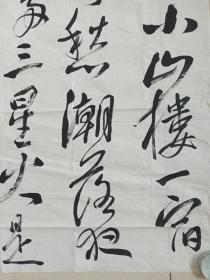 小山樓一宿
愁潮落夜
三星火是